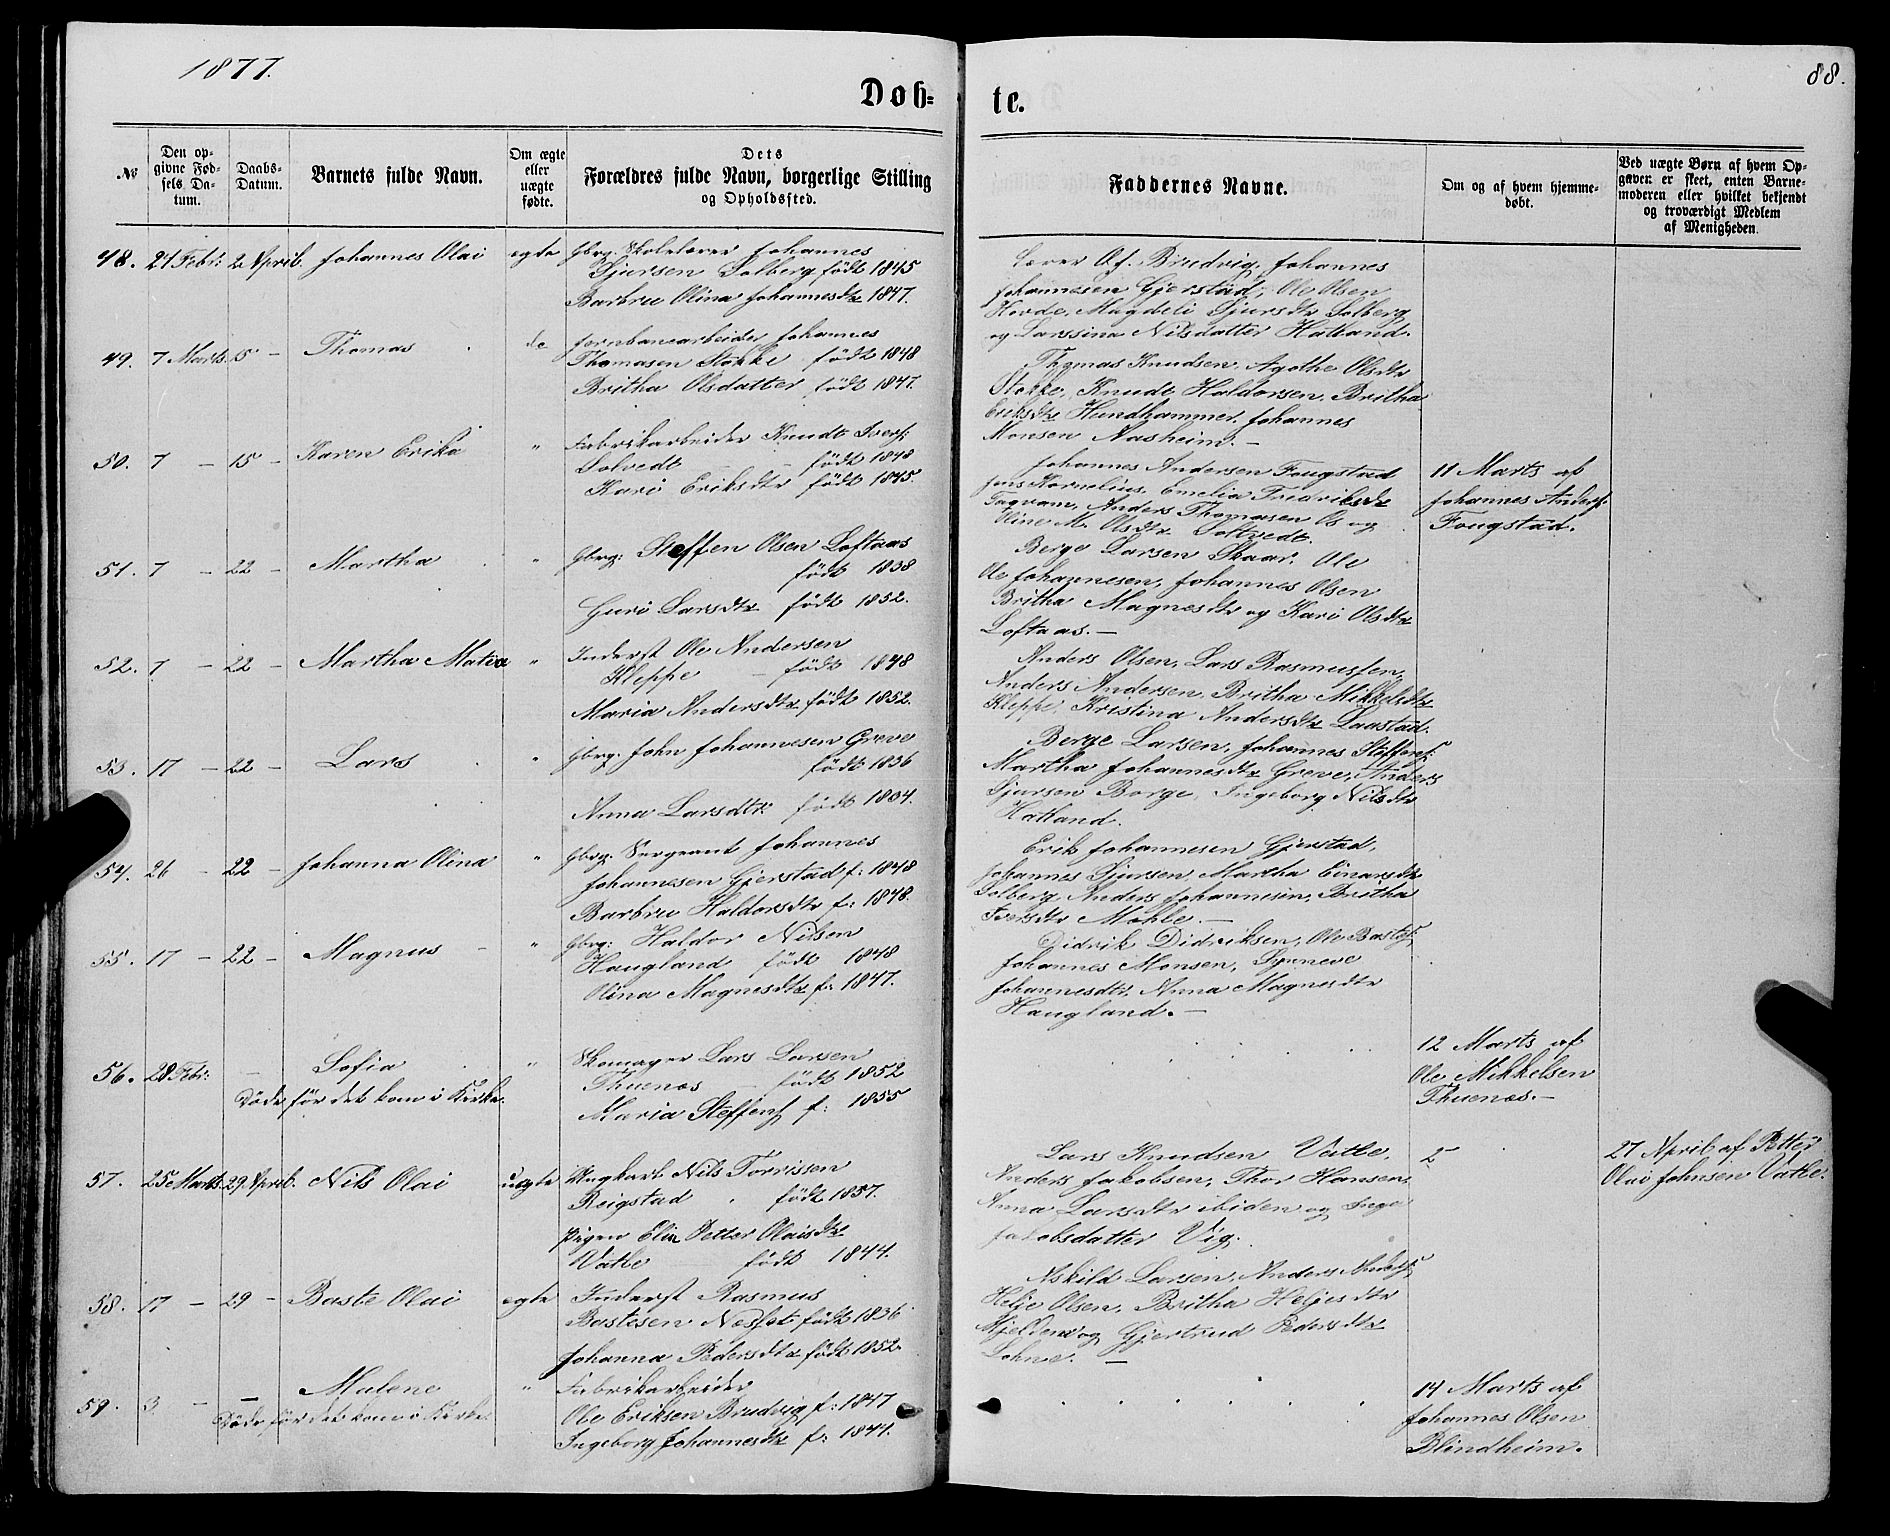 1877.
88.
Døb=
te.
№
Den op-
givne Fød-
sels Da-
tum.
Daabs-
Datum.
Barnets fulde Navn.
Om ægte
eller
uægte
fødte.
Dets
Forældres fulde Navn, borgerlige Stilling
og Opholdssted.
Faddernes Navne.
Om og af hvem hjemme-
døbt.
Ved uægte Børn af hvem Op-
gaven er skeet, enten Barne-
moderen eller hvilket bekjendt
og troværdigt Medlem
af Menigheden.
48. 21 Febr: 2 April. Johannes Olai ægte Gbrg. Skolelærer Johannes
Sjursen Solberg født 1845
Barbru Olina Johannesdtr 1847.
Lærer Of. Brudvig, Johannes
Johannesen Gjerstad, Ole Olsen
Hovde, Magdeli Sjursdtr Solberg
og Larssina Nilsdatter Hatland.
49. 7 Marts. 15 – Thomas do Jernbanearbeider Johannes
Thomasen Stokke født 1848
Britha Olsdatter født 1847.
Thomas Knudsen, Agothe Olsdtr
Stokke, Knudt Haldorsen, Britha
Eriksdtr Hundhammer, Johannes
Monsen Aasheim. –
50. 7 – 15 – Karen Erika " Fabrikarbeider Knudt Ivers:
Solvedt – – født 1848
Kari Eriksdtr født 1845.
Johannes Andersen Fougstad
Jens Kornelius, Emelia Fredriksdtr
Tagvam, Anders Thomasen Os og
Oline M. Olsdtr Soltvedt.
11 Marts af
Johannes Anders:
Fougstad.
51. 7 – 22 – Martha " Gbrg: Steffen Olsen Loftaas
født 1838
Guri Larsdtr født 1852.
Berge Larsen Skaar, Ole
Ole Johannesen, Johannes Olsen
Britha Magnesdtr og Kari Olsdtr
Loftaas. –
52. 7 – 22 – Martha Matea " Inderst Ole Andersen
Kleppe – født 1848
Maria Andersdtr født 1852.
Anders Olsen, Lars Rasmussen,
Anders Andersen, Britha Mikkelsdtr
Kleppe, Kristina Andersdtr Laastad.
53. 17 – 22 – Lars " Gbrg. John Johannesen Greve
født 1836
Anna Larsdtr. født 1834.
Berge Larsen, Johannes Steffens:
Martha Johannesdtr Greve, Anders
Sjursen Borge, Ingeborg Nilsdtr
Hatland.
54. 26 – 22 – Johanna Olina " Gbrg. Sergeant Johannes
Johannesen Gjerstad f: 1848
Barbru Haldorsdtr f: 1848.
Erik Johannesen Gjerstad,
Johannes Sjursen, Martha Einarsdtr
Solberg, Anders Johannesen, Britha
Iversdtr Mohle. –
55. 17 – 22 – Magnus – " Gbrg: Haldor Nilsen
Haugland født 1848
Olina Magnesdtr f: 1847.
Didrik Didriksen, Ole Bastes:
Johannes Monsen, Synneve
Johannesdtr, Anna Magnesdtr
Haugland. –
56. 28 Febr: – Sofia "
Døde før det kom i Kirke.
Skomager Lars Larsen
Thuenæs – født 1852
Maria Steffens: f: 1855
12 Marts af
Ole Mikkelsen
Thuenæs. –
57. 25 Marts 29 April. Nils Olai uægte Ungkarl Nils Torrissen
Reigstad født 1857.
Pigen Elin Petter Olaisdtr
Vatle født 1844.
Lars Knudsen Vatle,
Anders Jakobsen, Thor Hansen,
Anna Larsdtr ibiden og Inga
Jakobsdatter Vig.
27 April af Petter
Olai Johnsen Vatle.
58. 17 – 29 – Baste Olai ægte Inderst Rasmus
Bastesen Nesset født 1836
Johanna Pedersdtr født 1852.
Askild Larsen, Anders Anders:
Helje Olsen, Britha Heljesdtr
Mjelde og Gjertrud Pedersdtr
Lohne. –
59. 3 – – Malene "
Døde før det kom i Kirke.
Fabrikarbeider
Ole Eriksen Brudvig f: 1847
Ingeborg Johannesdtr f: 1844.
14 Marts af
Johannes Olsen
Blindheim.